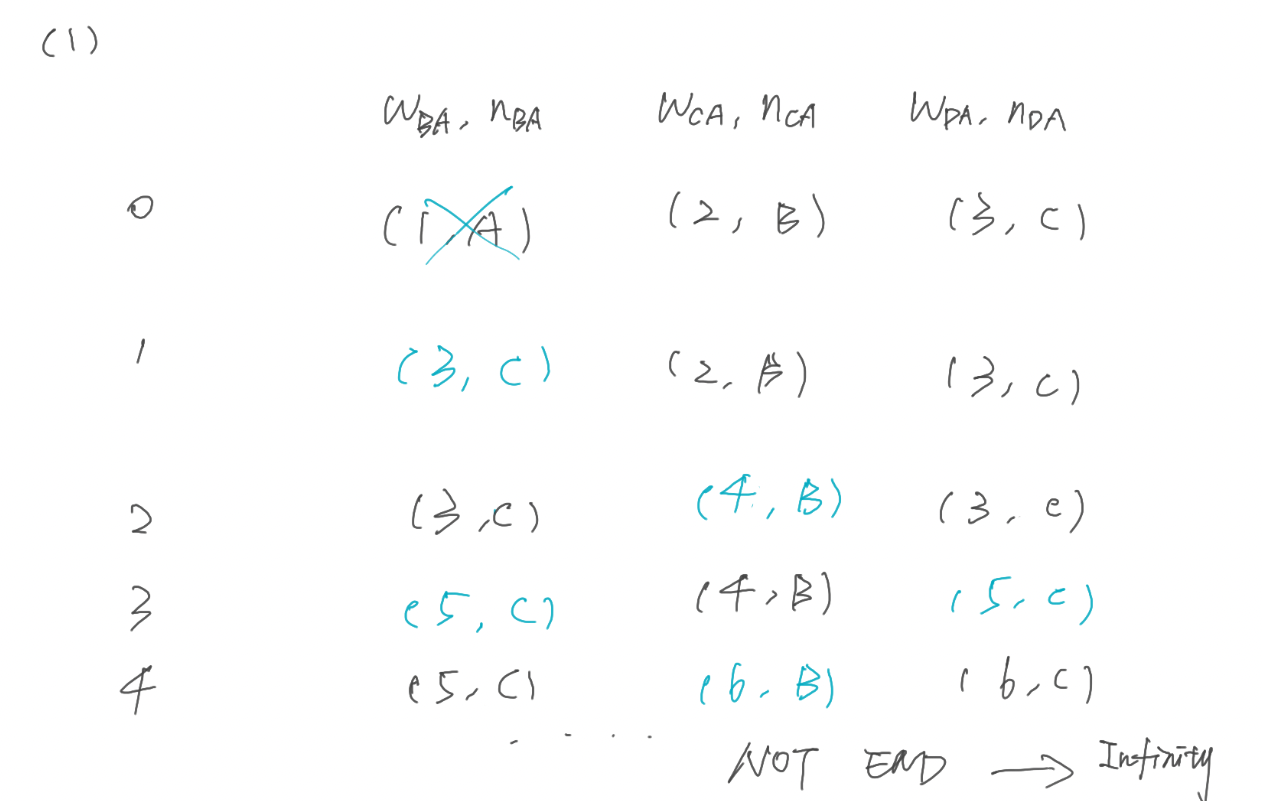 (1)
W_BA, n_BA W_CA, n_CA W_DA, n_DA
0 (1, A) (2, B) (3, C)
1 (3, C) (2, B) (3, C)
2 (3, C) (4, B) (3, C)
3 (5, C) (4, B) (5, C)
4 (5, C) (6, B) (6, C)
. . . .
NOT END → Infinity